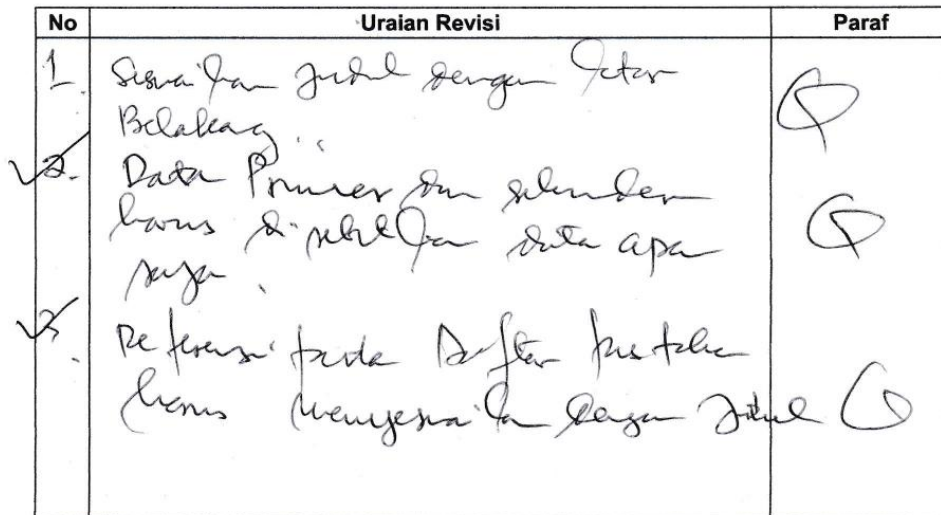 No Uraian Revisi Paraf
1. Sesuaikan Judul dengan latar
Belakang
2. Data Primer dan sekunder
harus disebutkan data apa
saja.
3. Referensi pada Daftar Pustaka
harus menyesuaikan dengan Judul